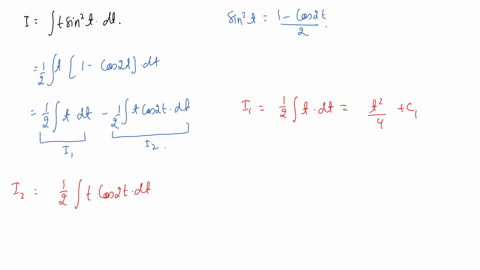 I = ∫ t sin² t · dt.
sin² t = (1 − Cos2t)/2.
= 1/2 ∫ t [1 − Cos2t] · dt
= 1/2 ∫ t · dt − 1/2 ∫ t Cos2t · dt
I₁
I₂.
I₁ = 1/2 ∫ t · dt = t²/4 + C₁
I₂ = 1/2 ∫ t Cos2t · dt